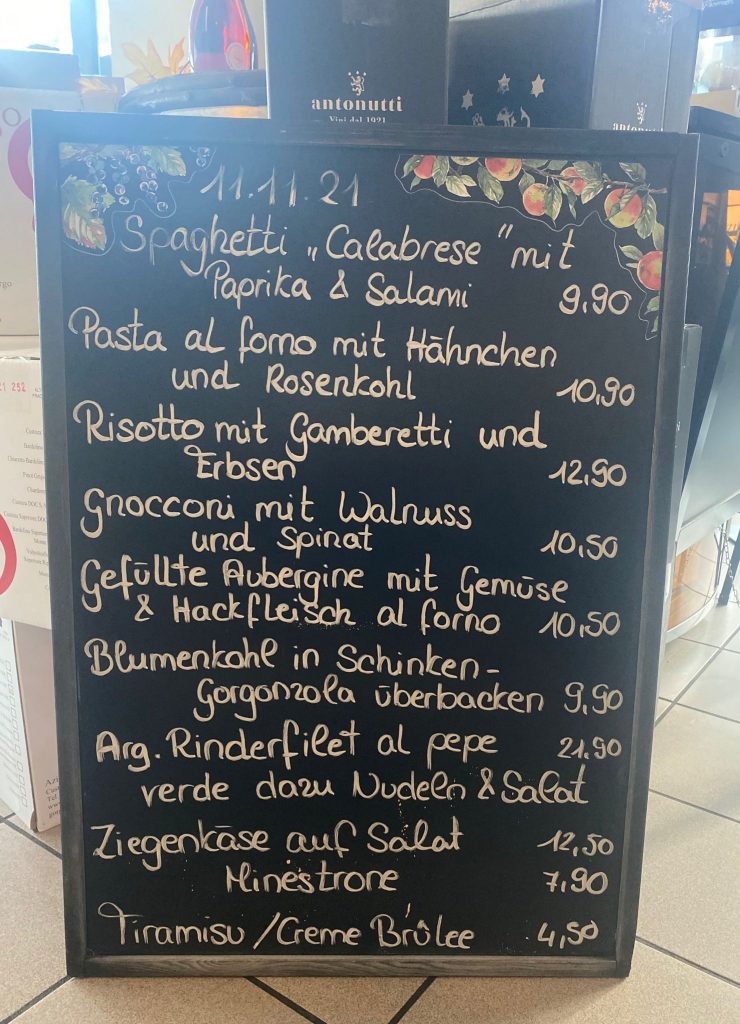 antonutti
Vini dal 1921
antonutti
11.11.21
Spaghetti „Calabrese" mit
Paprika & Salami 9,90
Pasta al forno mit Hähnchen
und Rosenkohl 10,90
Risotto mit Gamberetti und
Erbsen 12,90
Gnocconi mit Walnuss
und Spinat 10,50
Gefüllte Aubergine mit Gemüse
& Hackfleisch al forno 10,50
Blumenkohl in Schinken-
Gorgonzola überbacken 9,90
Arg. Rinderfilet al pepe 21,90
verde dazu Nudeln & Salat
Ziegenkäse auf Salat 12,50
Minestrone 7,90
Tiramisu / Creme Brûlee 4,50